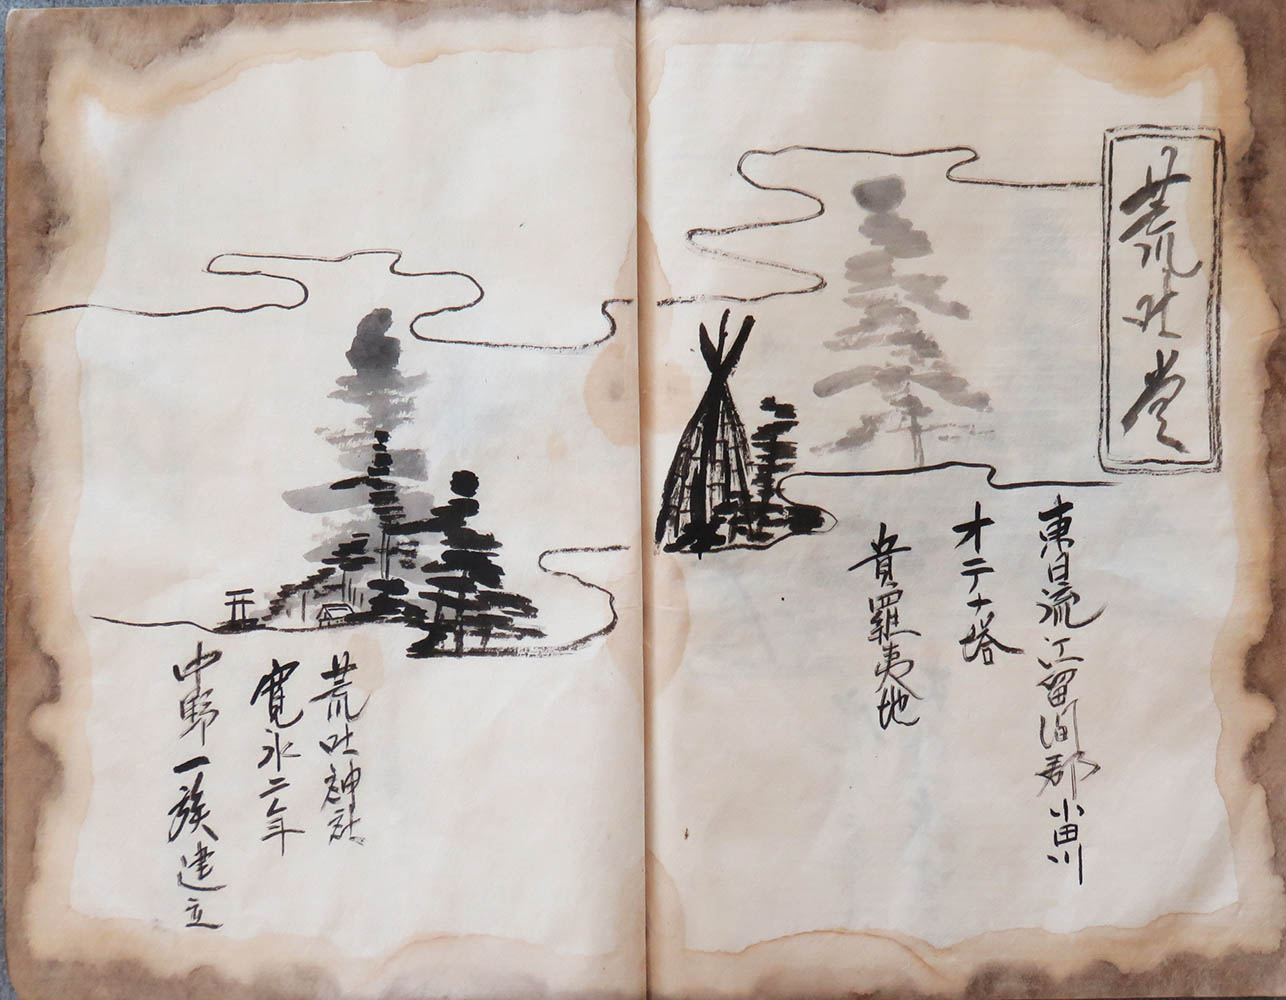 荒吐堂
東日流江留澗郡小田川
オテナ塔
貴羅夷地
荒吐神社
寛永二年
中野一族建立